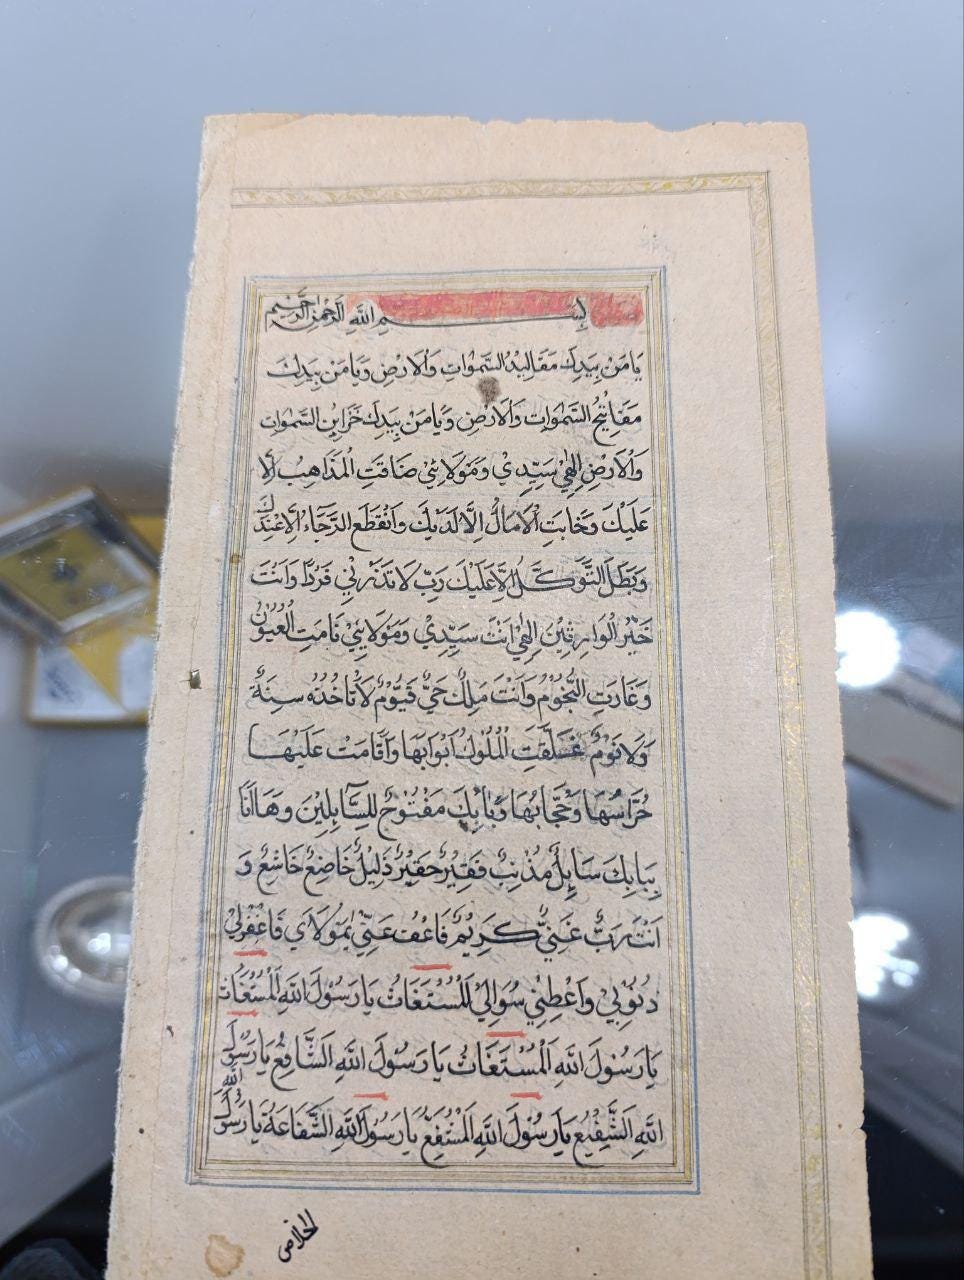 بِسْمِ اللَّهِ الرَّحْمٰنِ الرَّحِيْمِ
يَا مَنْ بِيَدِكَ مَقَالِيْدُ السَّمٰوَاتِ وَالْاَرْضِ وَيَا مَنْ بِيَدِكَ
مَفَاتِيْحُ السَّمٰوَاتِ وَالْاَرْضِ وَيَا مَنْ بِيَدِكَ خَزَايِنِ السَّمٰوَاتِ
وَالْاَرْضِ اِلٰهِيْ سَيِّدِيْ وَمَوْلَايِيْ ضَاقَتِ الْمَذَاهِبُ اِلَّا
عَلَيْكَ وَخَابَتِ الْاٰمَالُ اِلَّا لَدَيْكَ وَانْقَطَعَ الرَّجَاءُ اِلَّا عِنْدَكَ
وَبَطَلَ التَّوَكُّلُ اِلَّا عَلَيْكَ رَبِّ لَا تَذَرْنِيْ فَرْدًا وَاَنْتَ
خَيْرُ الْوَارِثِيْنَ اِلٰهِيْ اَنْتَ سَيِّدِيْ وَمَوْلَايِيْ نَامَتِ الْعُيُوْنُ
وَغَارَتِ النُّجُوْمُ وَاَنْتَ مَلِكٌ حَيٌّ قَيُّوْمٌ لَا تَاْخُذُهٗ سِنَةٌ
وَلَا نَوْمٌ غَلَّقَتِ الْمُلُوْكُ اَبْوَابَهَا وَاَقَامَتْ عَلَيْهَا
حُرَّاسُهَا وَحُجَّابُهَا وَبَابُكَ مَفْتُوْحٌ لِلسَّآيِلِيْنَ وَهَا اَنَا
بِبَابِكَ سَايِلٌ مُذْنِبٌ فَقِيْرٌ حَقِيْرٌ ذَلِيْلٌ خَاضِعٌ خَاشِعٌ وَ
اَنْتَ رَبٌّ غَنِيٌّ كَرِيْمٌ فَاعْفُ عَنِّيْ يَمَوْلَايَ فَاغْفِرْلِيْ
ذُنُوْبِيْ وَاَعْطِنِيْ سُوَالِيْ اَلْمُسْتَغَاثُ يَا رَسُوْلَ اللَّهِ اَلْمُسْتَغَاثُ
يَا رَسُوْلَ اللَّهِ اَلْمُسْتَغَاثُ يَا رَسُوْلَ اللَّهِ اَلشَّافِعُ يَا رَسُوْلَ
اللَّهِ اَلشَّفِيْعُ يَا رَسُوْلَ اللَّهِ اَلْمُسْتَفِعُ يَا رَسُوْلَ اللَّهِ اَلشَّفَاعَةُ يَا رَسُوْلَ اللَّهِ